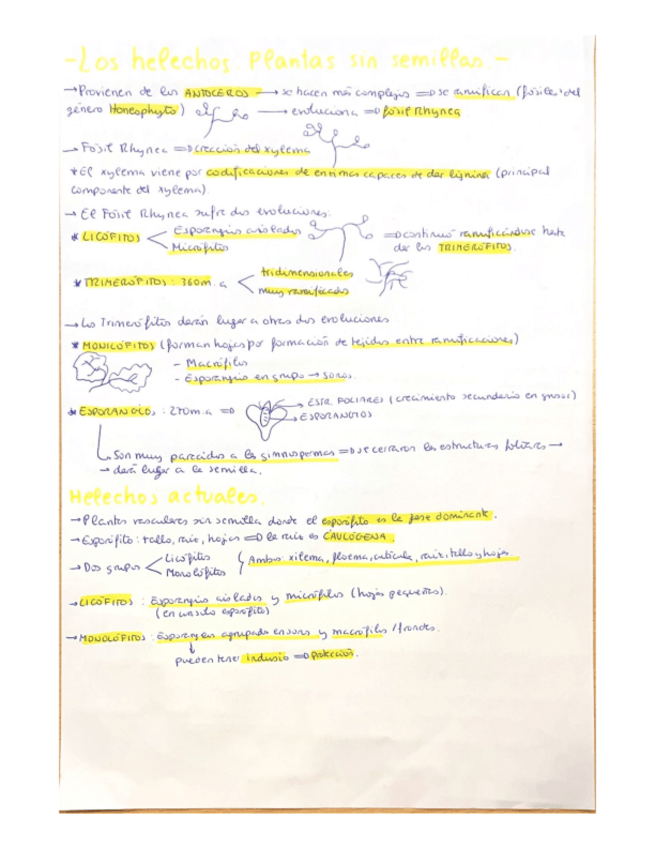 -Los helechos. Plantas sin semillas.-
→Provienen de los ANTOCEROS → se hacen más complejos ⇒ se ramifican (fósiles del
género Honeophyto) → evoluciona ⇒ fósil Rhynea
→ Fósil Rhynea ⇒ creación del xylema
*El xylema viene por codificaciones de enzimas capaces de dar lignina (principal
componente del xylema)
→ El Fósil Rhynea sufre dos evoluciones:
* LICÓFITOS < Esporangios aislados
Micrófitos
⇒ continuó ramificándose hasta
dar los TRIMERÓFITOS.
* TRIMERÓFITOS: 360m.a < tridimensionales
muy ramificados
→ Los Trimerófitos darán lugar a otras dos evoluciones
* MONILÓFITOS (forman hojas por formación de tejidos entre ramificaciones)
- Macrófilos
- Esporangios en grupo → soros.
* ESPORANGIOS: 270m.a ⇒
→ ESTR. FOLIARES (crecimiento secundario en grosor)
→ ESPORANGIOS
Son muy parecidos a las gimnospermas ⇒ se cerraron las estructuras foliares →
→ dará lugar a la semilla.
Helechos actuales.
→Plantas vasculares sin semilla donde el esporófito es la fase dominante.
→Esporófito: tallo, raíz, hojas ⇒ la raíz es CAULÓGENA.
→ Dos grupos < Licófitos
Monolófitos
{ Ambos: xilema, floema, cutícula, raíz, tallo y hojas.
→LICÓFITOS: Esporangios aislados y micrófilos (hojas pequeñas).
(en un solo esporófito)
→MONOLÓFITOS: Esporangios agrupados en soros y macrófilos / frondes.
↓
pueden tener indusio ⇒ protección.